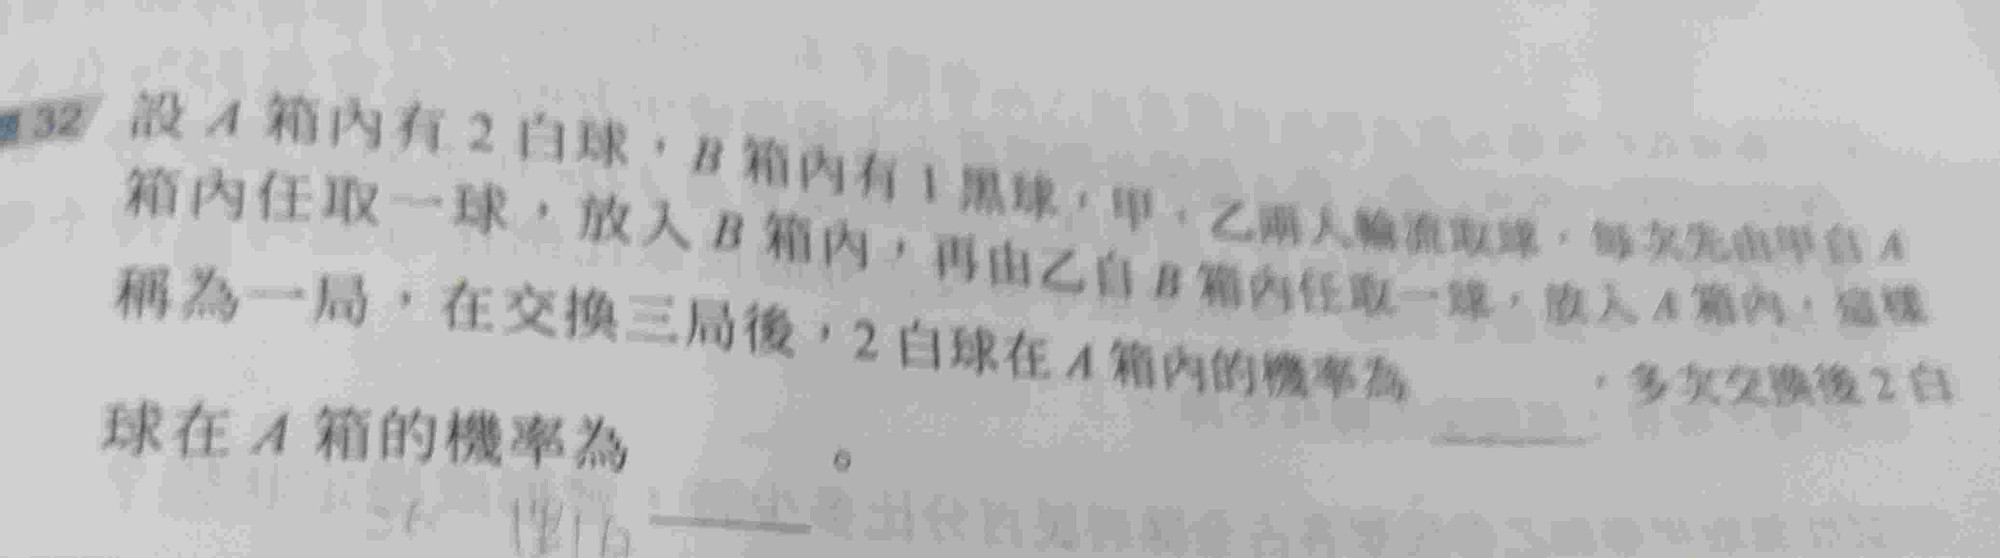 32 設 A 箱內有 2 白球，B 箱內有 1 黑球，甲、乙兩人輪流取球，每次先由甲自 A
箱內任取一球，放入 B 箱內，再由乙自 B 箱內任取一球，放入 A 箱內，這樣
稱為一局，在交換三局後，2 白球在 A 箱內的機率為______，多次交換後 2 白
球在 A 箱的機率為______。